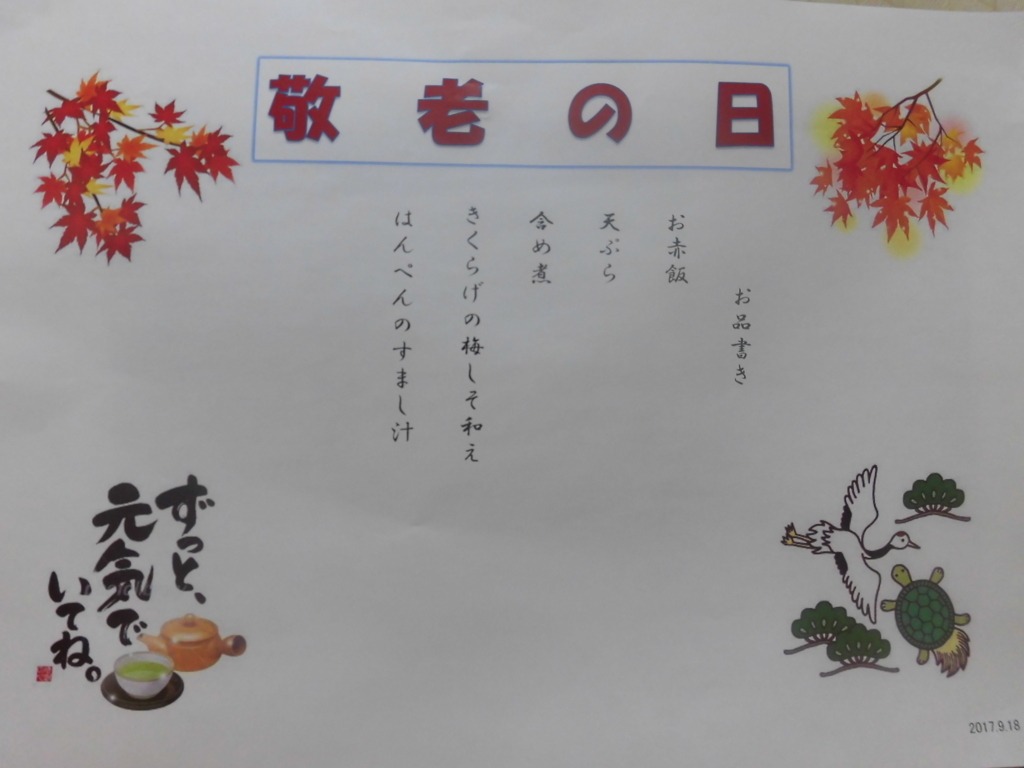 敬老の日
お品書き
お赤飯
天ぷら
含め煮
きくらげの梅しそ和え
はんぺんのすまし汁
ずっと、
元気で
いてね。
2017.9.18